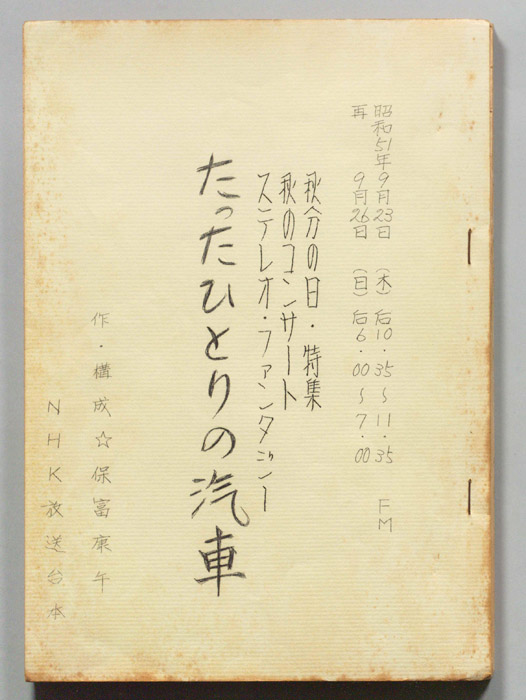 昭和51年9月23日(木)后10・35〜11・35 FM
再 9月26日(日)后6・00〜7・00
秋分の日・特集
秋のコンサート
ステレオ・ファンタジー
たったひとりの汽車
作・構成☆保富康午
NHK放送台本